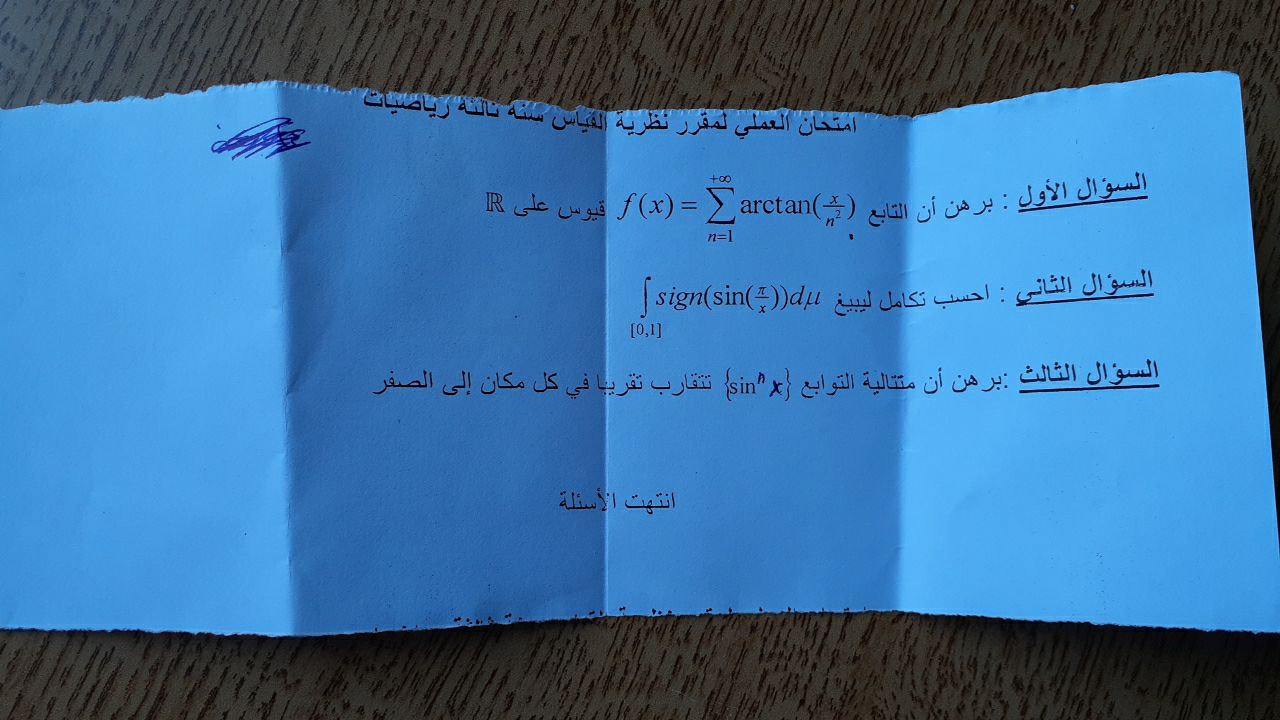 امتحان العملي لمقرر نظرية القياس سنة ثالثة رياضيات
السؤال الأول : برهن أن التابع f(x) = \sum_{n=1}^{+\infty} \arctan(\frac{x}{n^2}) قيوس على ℝ
السؤال الثاني : احسب تكامل ليبيغ \int_{[0,1]} sign(\sin(\frac{\pi}{x}))d\mu
السؤال الثالث :برهن أن متتالية التوابع {sin^n x} تتقارب تقريبا في كل مكان إلى الصفر
انتهت الأسئلة